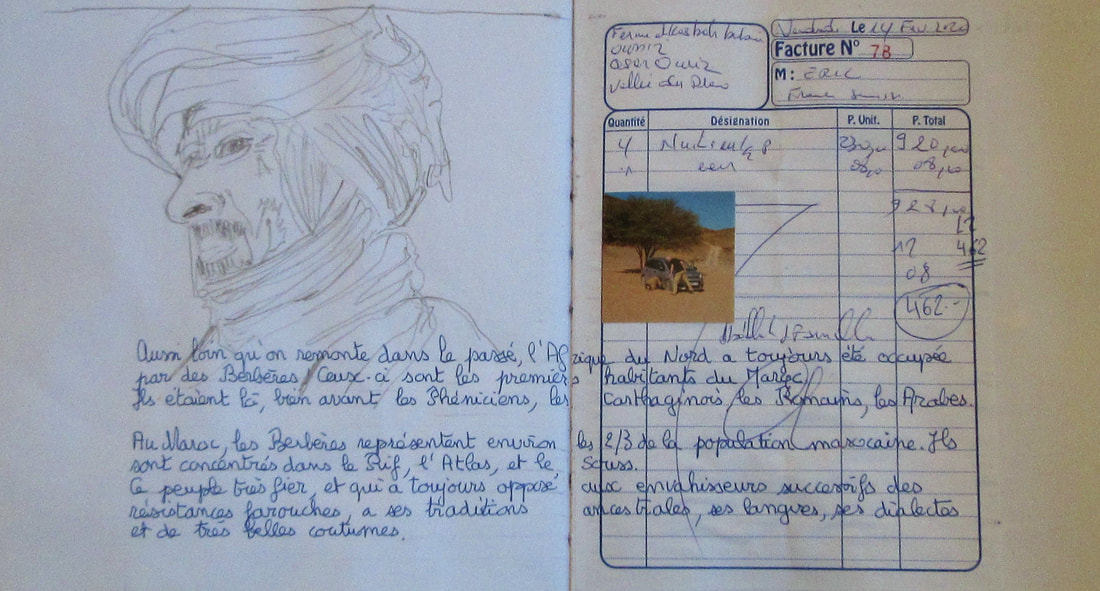 Vendredi Le 14 Fev. 2020
Facture N° 78
M: ERIC
Ferme
Vallée du
Quantité Désignation P. Unit. P. Total
4 Nuit 230,00 920,00
08,00 08,00
462
08
462
Aussi loin qu'on remonte dans le passé, l'Afrique du Nord a toujours été occupée
par des Berbères. Ceux-ci sont les premiers habitants du Maroc.
Ils étaient là, bien avant les Phéniciens, les Carthaginois, les Romains, les Arabes.
Au Maroc, les Berbères représentent environ les 2/3 de la population marocaine. Ils
sont concentrés dans le Rif, l'Atlas, et le Souss.
Ce peuple très fier, et qui a toujours opposé aux envahisseurs successifs des
résistances farouches, a ses traditions ancestrales, ses langues, ses dialectes
et de très belles coutumes.